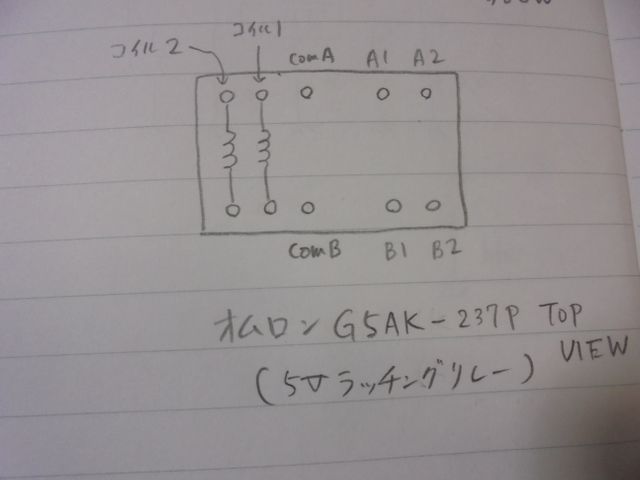 コイル1
コイル2
ComA A1 A2
ComB B1 B2
オムロン G5AK-237P TOP VIEW
(5Vラッチングリレー)